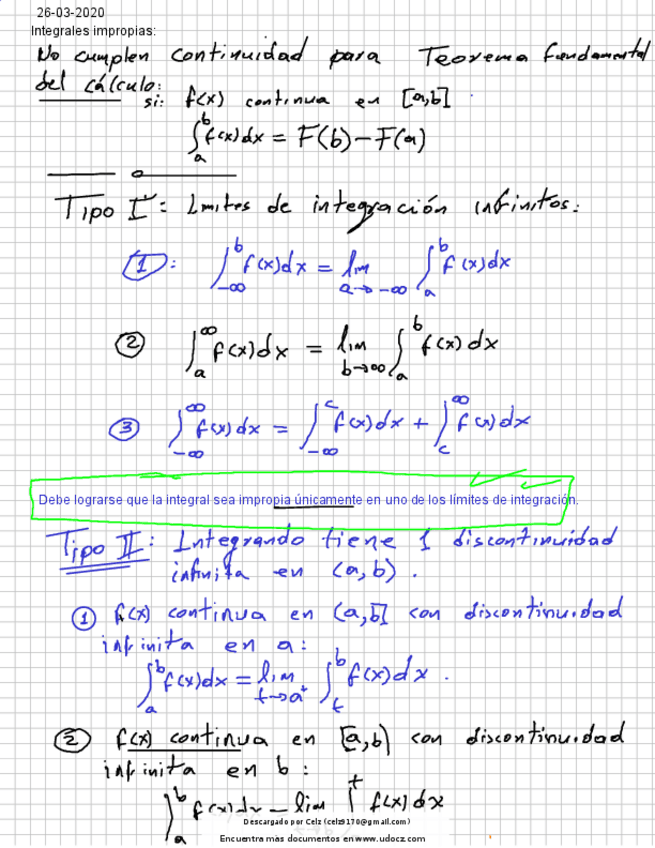 26-03-2020
Integrales impropias:
No cumplen continuidad para Teorema fundamental
del cálculo:
si: f(x) continua en [a,b]
∫_a^b f(x)dx = F(b)-F(a)
Tipo I: Límites de integración infinitos:
①: ∫_{-∞}^b f(x)dx = lim_{a→-∞} ∫_a^b f(x)dx
② ∫_a^∞ f(x)dx = lim_{b→∞} ∫_a^b f(x)dx
③ ∫_{-∞}^∞ f(x)dx = ∫_{-∞}^c f(x)dx + ∫_c^∞ f(x)dx
Debe lograrse que la integral sea impropia únicamente en uno de los límites de integración.
Tipo II: Integrando tiene 1 discontinuidad
infinita en (a,b).
① f(x) continua en (a,b] con discontinuidad
infinita en a:
∫_a^b f(x)dx = lim_{t→a⁺} ∫_t^b f(x)dx.
② f(x) continua en [a,b) con discontinuidad
infinita en b:
∫_a^b f(x)dx = lim ∫^t f(x)dx
Descargado por Celz (celz9170@gmail.com)
Encuentra más documentos en www.udocz.com